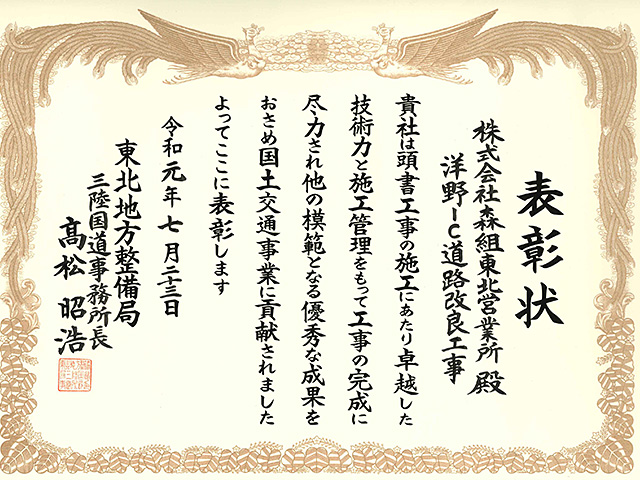 表彰状
株式会社森組東北営業所 殿
洋野IC道路改良工事
貴社は頭書工事の施工にあたり卓越した
技術力と施工管理をもって工事の完成に
尽力され他の模範となる優秀な成果を
おさめ国土交通事業に貢献されました
よってここに表彰します
令和元年七月二十三日
東北地方整備局
三陸国道事務所長
髙松昭浩